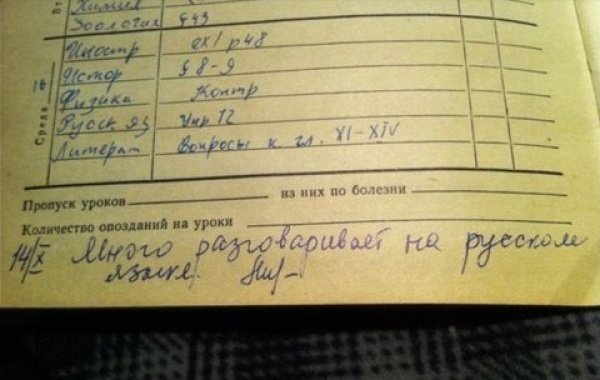 Химия
Зоология § 43
Иностр ex 1 p 48
Истор § 8-9
16 Физика Контр
Среда Русск яз Упр 12
Литерат Вопросы к гл. XI-XIV
Пропуск уроков из них по болезни
Количество опозданий на уроки
14/X Много разговаривает на русском
языке.